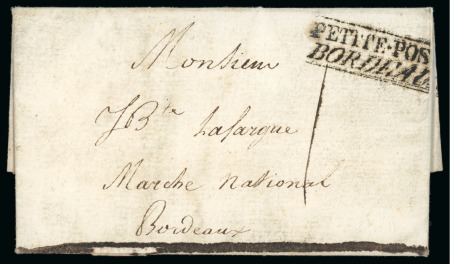 PETITE-POS
BORDEAU
Monsieur
JBte Lafargue
Marche National
Bordeaux